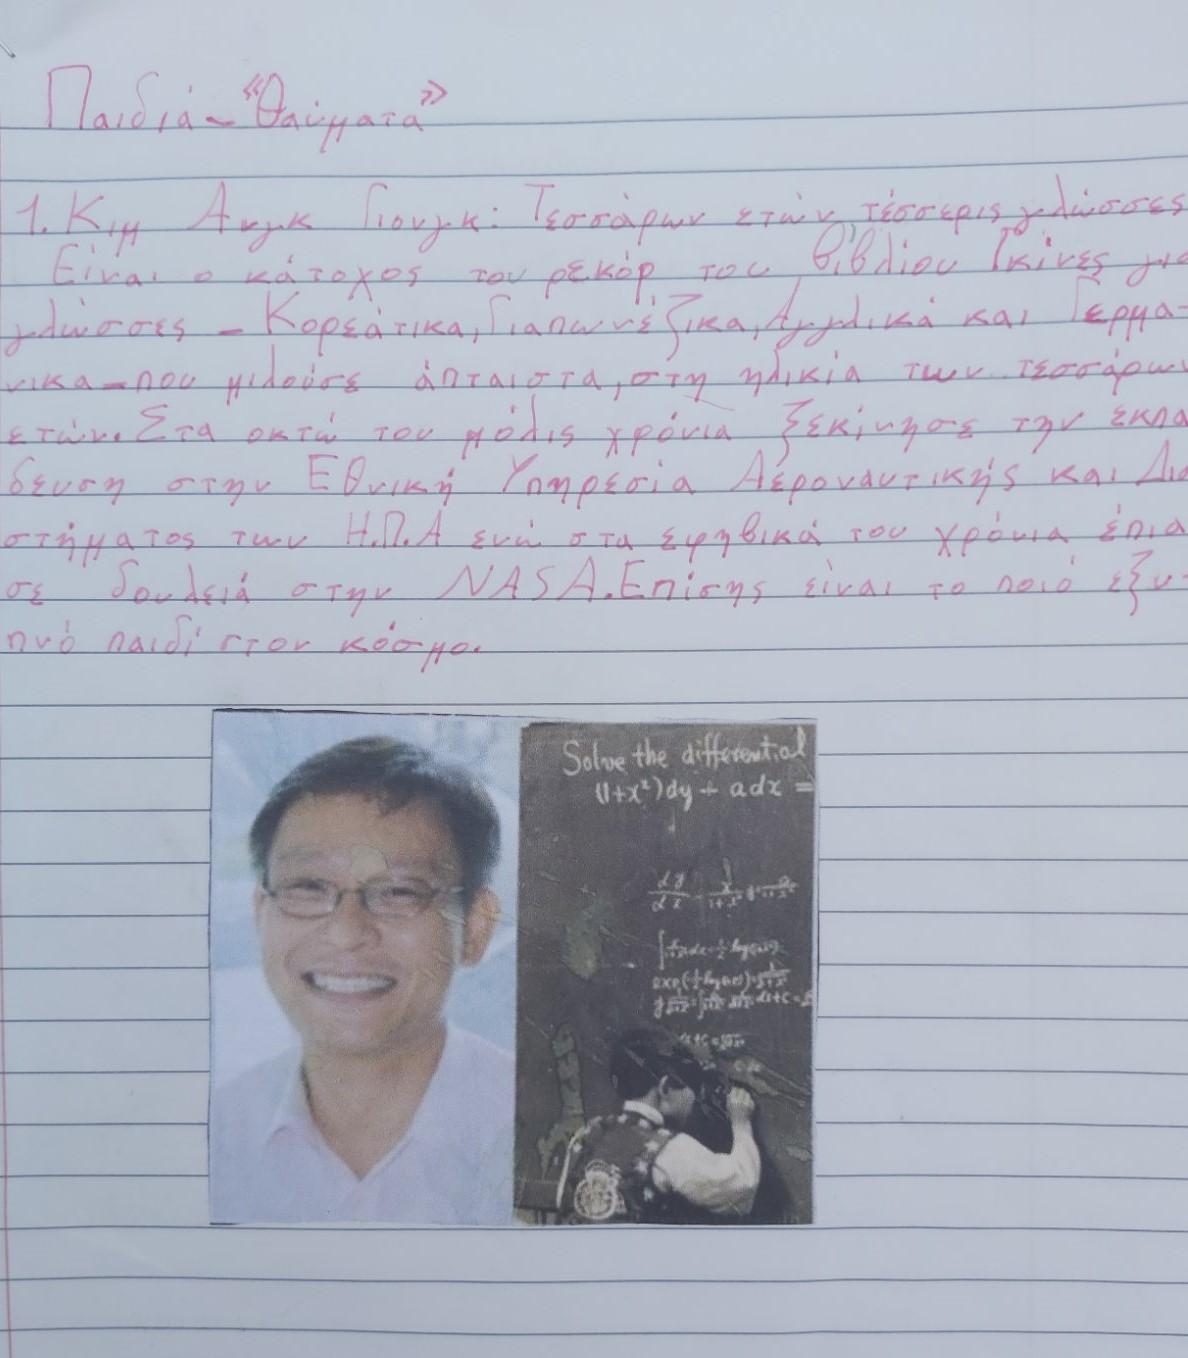 Παιδιά - «Θαύματα»
1. Κιμ Ανγκ Γιουγκ: Τεσσάρων ετών, τέσσερις γλώσσες
Είναι ο κάτοχος του ρεκόρ του βιβλίου Γκίνες για
γλώσσες - Κορεάτικα, Γιαπωνέζικα, Αγγλικά και Γερμα-
νικα - που μιλούσε άπταιστα, στη ηλικία των τεσσάρων
ετών. Στα οκτώ του μόλις χρόνια ξεκίνησε την εκπα
δευση στην Εθνική Υπηρεσία Αέροναυτικής και Δια
στήματος των Η.Π.Α ενώ στα εφηβικά του χρόνια έπια
σε δουλειά στην NASA. Επίσης είναι το ποιό εξυ-
πνό παιδί στον κόσμο.
Solve the differential
(1+x²)dy + adx =